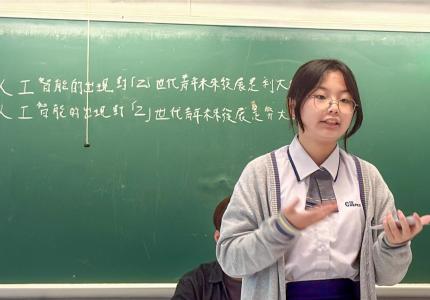 人工智能的出現對「Z」世代青年未來發展是利大
人工智能的出現對「Z」世代青年未來發展是弊大